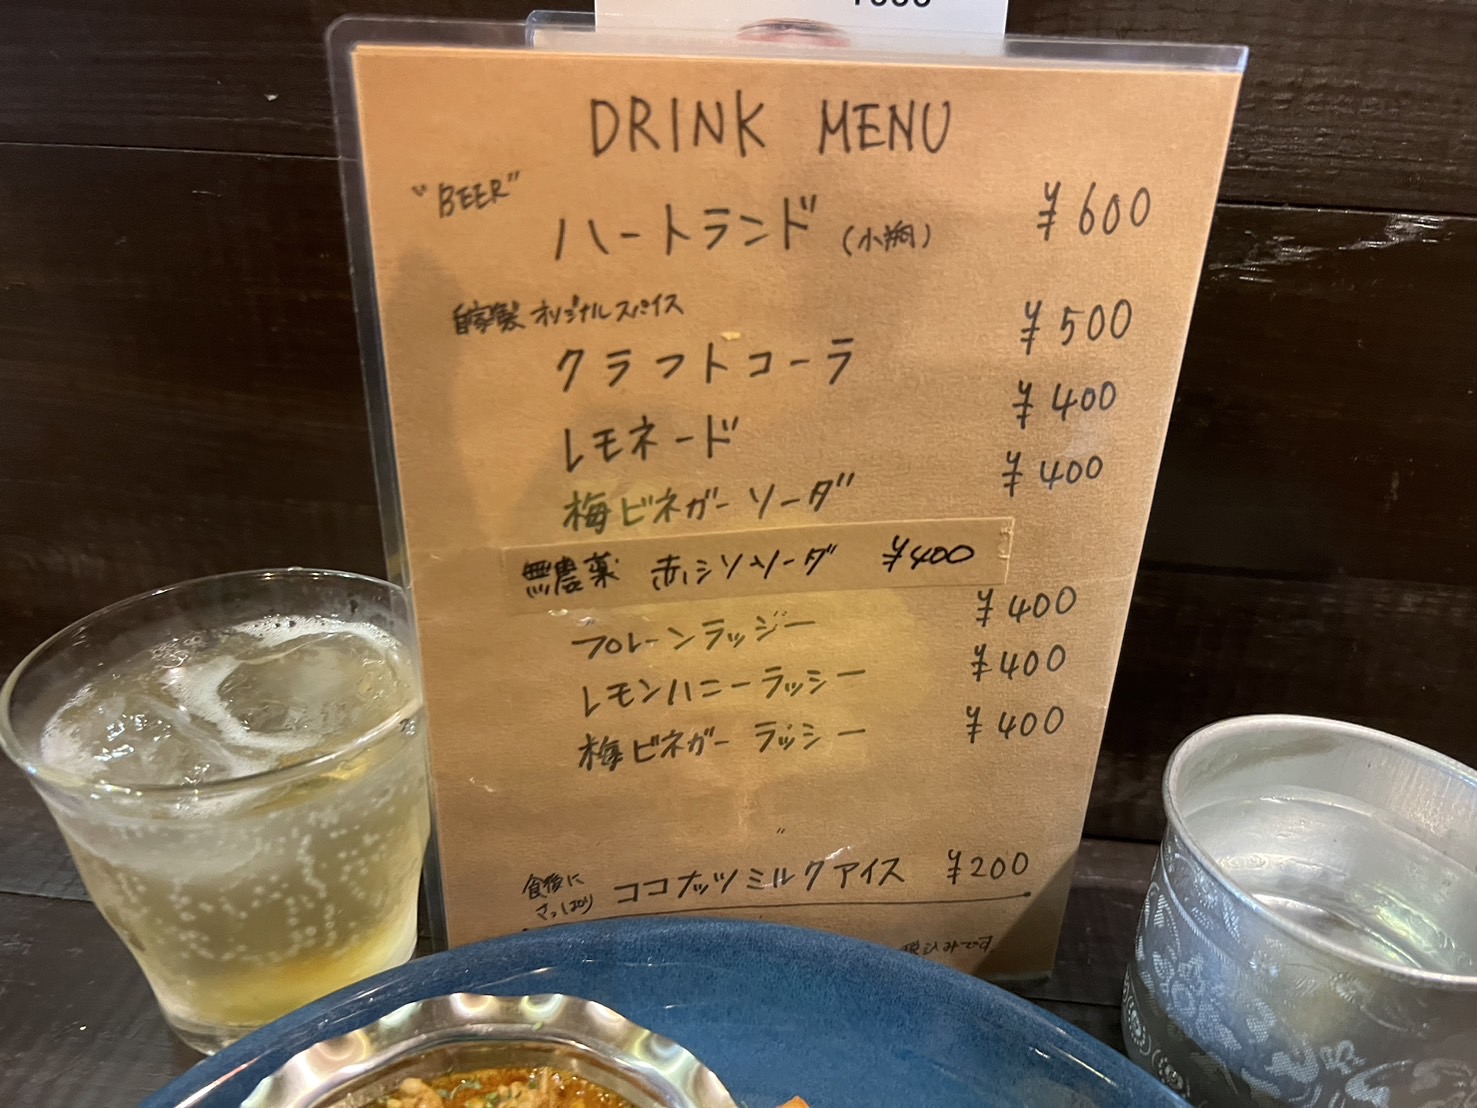 DRINK MENU
"BEER"
ハートランド (小瓶) ¥600
自家製 オリジナルスパイス
クラフトコーラ ¥500
レモネード ¥400
梅ビネガーソーダ ¥400
無農薬 赤シソソーダ ¥400
プレーンラッシー ¥400
レモンハニーラッシー ¥400
梅ビネガーラッシー ¥400
食後に
さっぱり ココナッツミルクアイス ¥200
税込みです